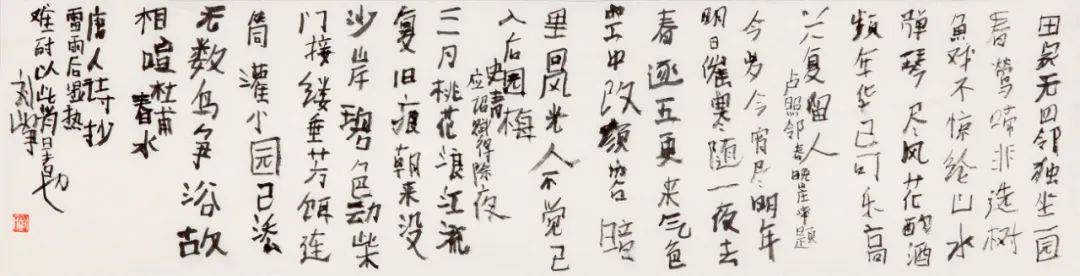 田家无四邻独坐一园
春莺啼非选树
鱼戏不惊纶山水
弹琴尽风花酌酒
频年华已可乐高
兴复留人
卢照邻春晚山庄率题
今岁今宵尽明年
明日催寒随一夜去
春逐五更来气色
空中改颜容暗
里回风光人不觉已
入后园梅
史青
应诏赋得除夜
三月桃花浪江流
复旧痕朝来没
沙岸碧色动柴
门接缕垂芳饵连
筒灌小园已添
无数鸟争浴故
相喧杜甫
春水
唐人诗抄
雨后湿热
难耐以此消